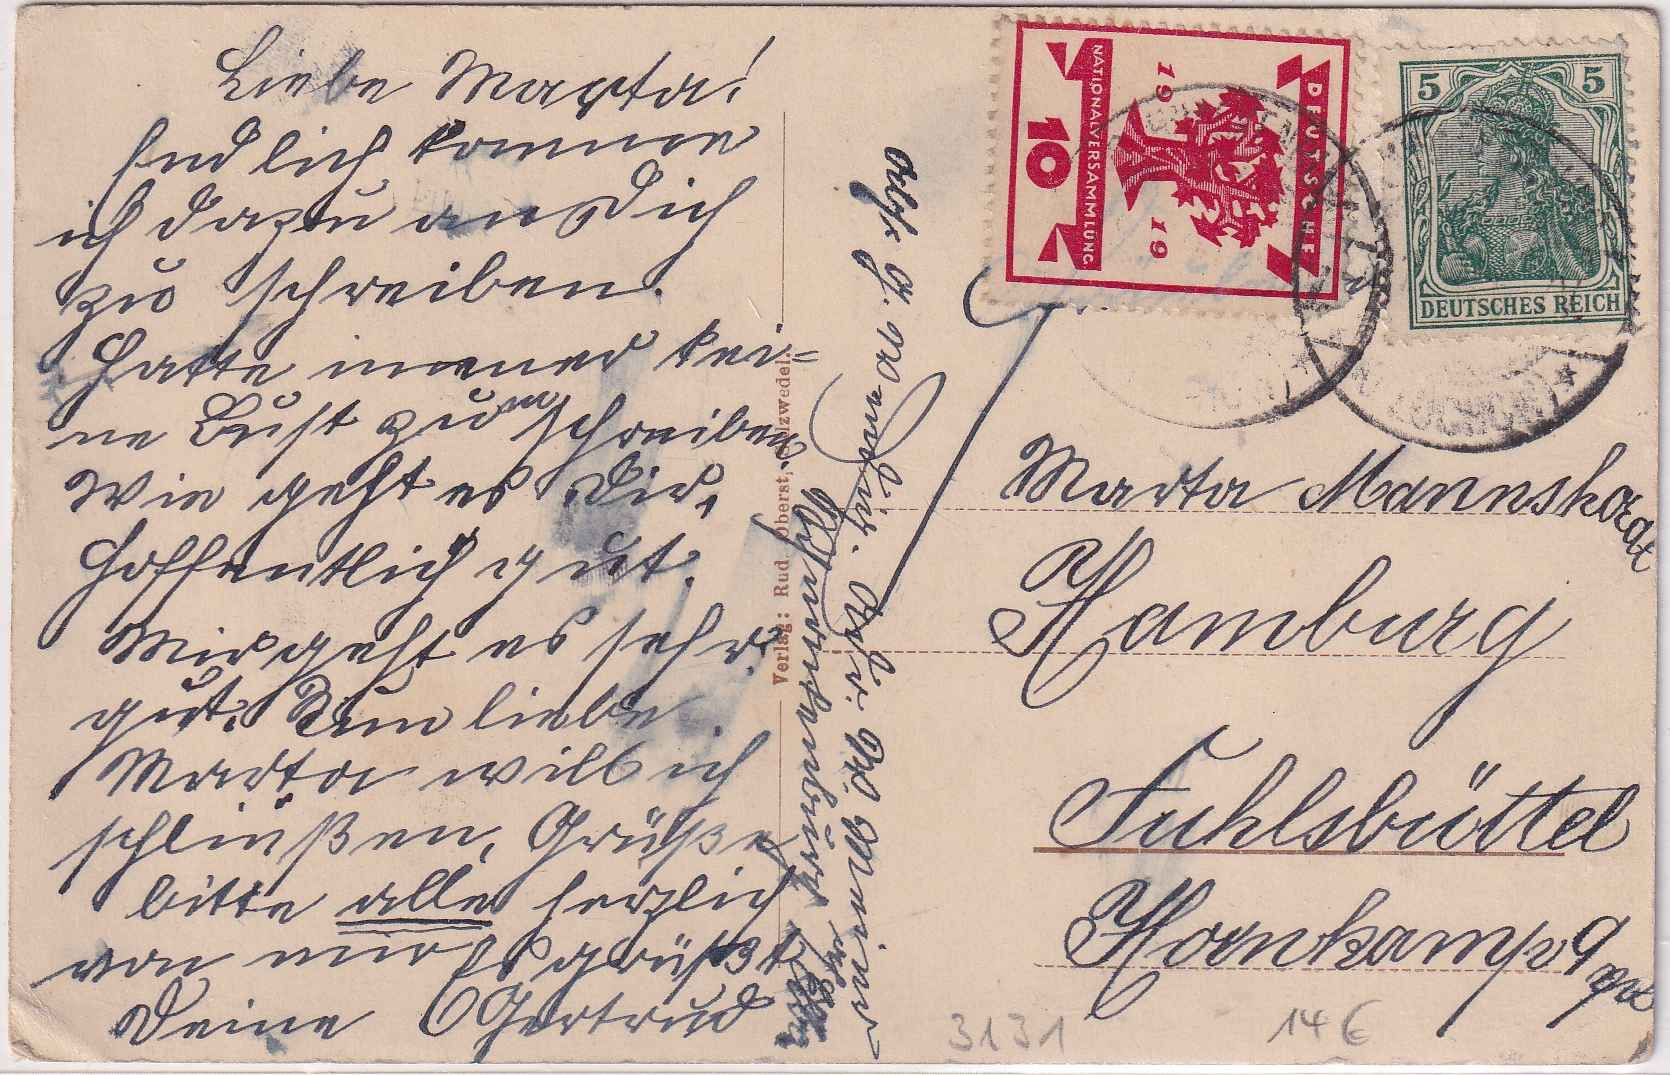 Liebe Marta!
Endlich komme
ich dazu an Dich
zu schreiben.
Hatte immer kei-
ne Lust zum schreiben
Wie geht es Dir,
hoffentlich gut.
Mir geht es sehr
gut. Nun liebe
Marta will ich
schließen, Grüße
bitte alle herzlich
von mir Es grüßt
Deine Gertrud
Verlag: Rud. Oberst, Salzweedel.
DEUTSCHE
1919
NATIONALVERSAMMLUNG
10
5 5
DEUTSCHES REICH
Marta Mannshardt
Hamburg
Fuhlsbüttel
Hornkamp 9
3131
14€